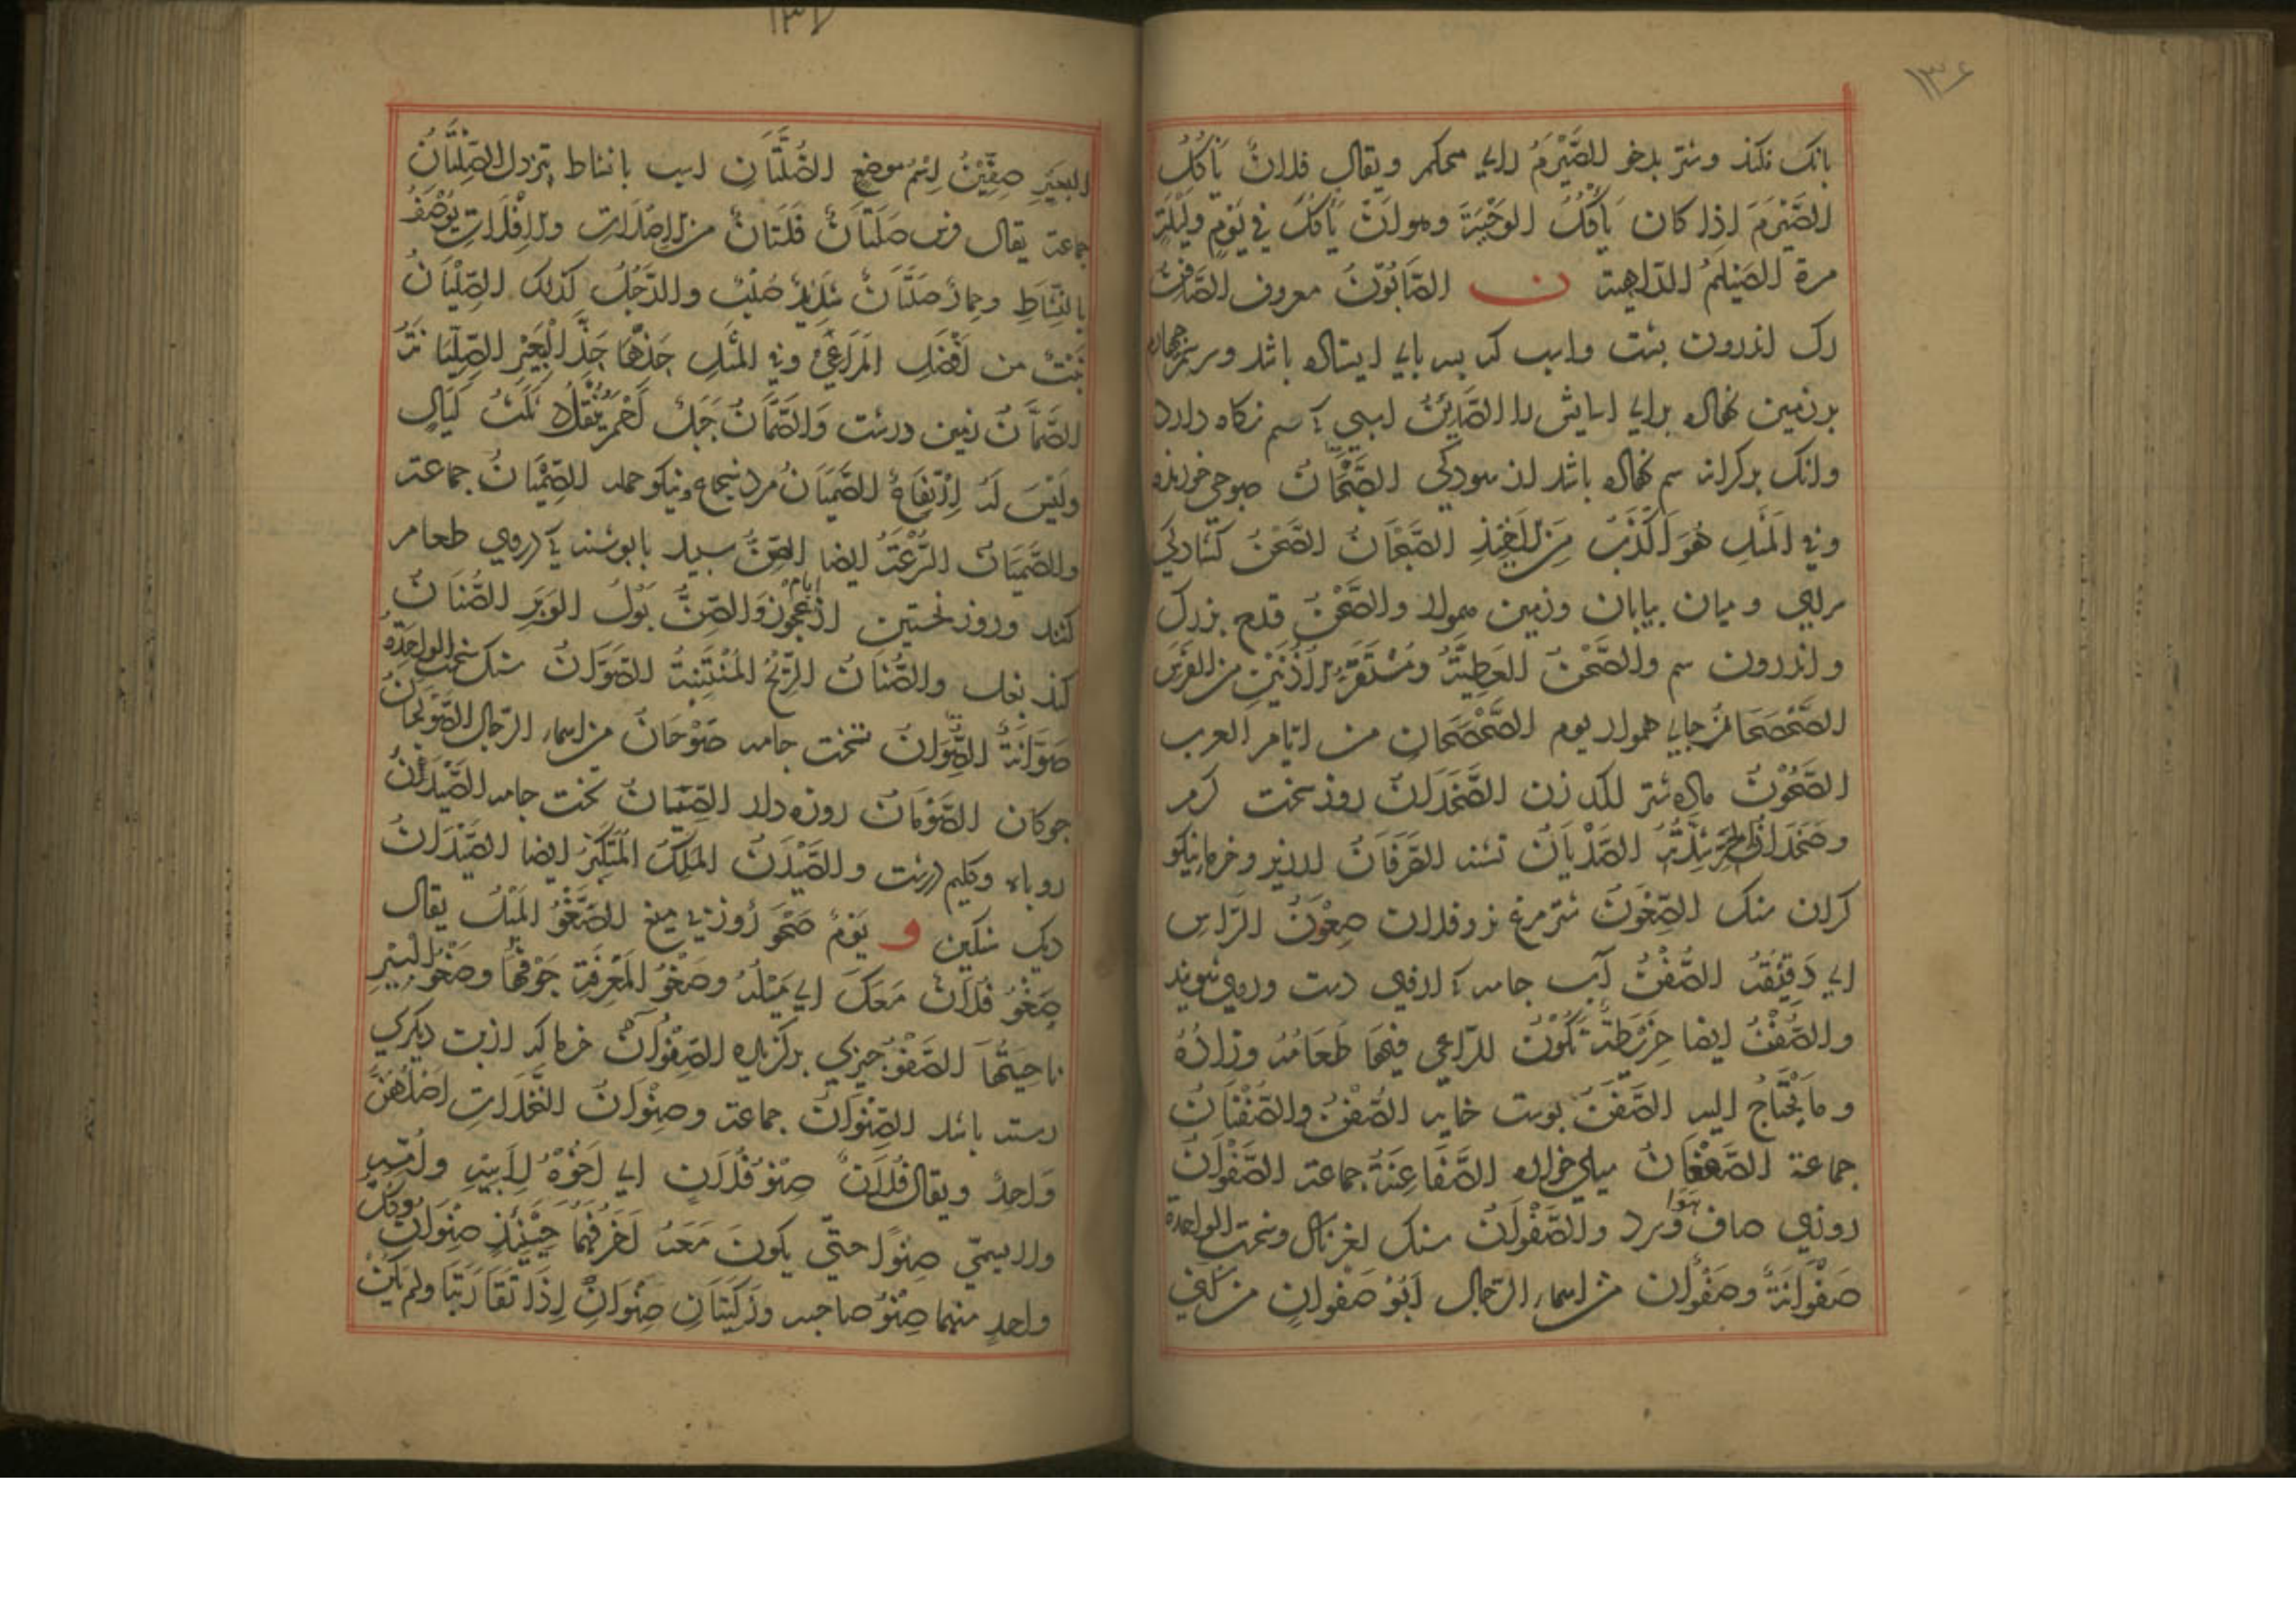 ۱۳۶
بانک نکند وشتر بدخو الصَّيْرَمُ راي محكم ويقال فلانٌ يَأكُلُ
الصَّيْرَمَ اذا كان يَأكُلُ الوَجْبَةَ وهو ان يَأكُلَ في يَوْمٍ ولَيْلَةٍ
مرة الصَيْلَمُ الدّاهية ن الصَّابُوْنُ معروف الصَّافِنُ
رک اندرون واسب که بسه پاي ایستاده باشد وسر سم چهارم
بر زمین نهاده براي اسایش را الصَّاينُ اسبي که سم نکاه دارد
وانک بر کرانه سم نهاده باشد از سودکي الصَّبْحَانُ صبوحي خورنده
وفي المَثَلِ هُوَ اَكْذَبُ مِنَ الاَخِيْذِ الصَّبْحَانِ الصَّحْنُ کشادکي
سراي و میان بیابان وزمین هموار والصَّحْنُ قدح بزرک
واندرون سم والصَّحْنُ العَطِيَّةُ ومُسْتَقَرُّ الاُذُنَيْنِ من الفَرَسِ
الصَّحْصَحَانُ جايي هموار يوم الصَّحْصَحَانِ من ايّام العرب
الصَّحُوْنُ ماده شتر لکد زن الصَّخَدَانُ روز سخت کرم
وصَخَدَانُ الحَرِّ شِدَّتُهُ الصَّدْيَانُ تشنه الصَّرَفَانُ ارزیز وخرماء نیکو
کران سنک الصِّعْوَنُّ شترمرغ نر وفلان صِعْوَنُّ الرَّاسِ
اي دَقِيْقُهُ الصُّفْنُ آب جامه که ازوي دست وروي شویند
والصُّفْنُ ايضا خَرِيْطَةٌ تَكُوْنُ للرّاعي فيها طَعَامُهُ وزادُهُ
وما يَحْتَاجُ اليه الصَّفَنُ پوست خایه الصُّفْنُ والصَّفْنَانُ
جماعة الصَّفْعَانُ سیلي خواره الصَّفَاعِنَةُ جماعة الصَّفْوَانُ
روزي صافي هوا وسرد والصَّفْوَانُ سنک لغزنده وسخت الواحدة
صَفْوَانَةٌ وصَفْوَان من اسماء الرّجال اَبُوْ صَفْوَانٍ من كُنَي
۱۳۷
البَعِيْرِ صِفِّيْنُ اِسْمُ مَوضِعٍ الصَّلَتَانِ اسب بانشاط تیزدل الصِّلْتَانُ
جماعة يقال فرس صَلَتَانٌ فَلَتَانٌ من الاِصْلَاتِ والاِفْلَاتِ يُوْصَفُ
بالنَّشَاطِ وحمارٌ صَلَتَانٌ شَدِيْدٌ صُلْبٌ والرَّجُلُ كذلك الصِّلِّيَانُ
نَبْتٌ من اَفْضَلِ المَرَاعِيْ وفي المَثَلِ جَذَّهَا جَذَّ الْبَعِيْرِ الصِّلِّيَانَةَ
الصَّمَّانُ زمین درشت وَالصَّمَّانُ جَبَلٌ اَحْمَرُ يَنْقَادُ ثَلَثَ لَيَالٍ
ولَيْسَ لَهُ اِرْتِفَاعٌ الصَّمَيَانُ مرد شجاع ونیکو حمله الصِّمْيَانُ جماعة
والصَّمَيَانُ السُّرْعَةُ ايضا الصِّنُّ سبد با پوشنه که دروي طعام
کنند وروز نخستین از ايام عجوز وَالصِّنُّ بَوْلُ الوَبَرِ الصُّنَانُ
کند بغل والصُّنَانُ الرِّيْحُ المُنْتِنَةُ الصَّوَّانُ سنک سخت الواحِدَةُ
صَوَّانَةٌ الصِّوَانُ تخت جامه صَوْحَانُ من اسماء الرّجال الصَّوْلَجَانُ
جوکان الصَّوْمَانُ روزه دار الصِّيَانُ تخت جامه الصَّيْدَنُ
روباه وکلیم درشت والصَّيْدَنُ المَلِكُ المُتَكَبِّرُ ايضا الصَّيْدَانُ
دیک سنکین و يَوْمٌ صَحْوٌ روز بي میغ الصَّغْوُ المَيْلُ يقال
صِغْوُ فُلَانٍ مَعَكَ اي مَيْلُهُ وصَغْوُ المِغْرَفَةِ جَوْفُهَا وصَغْوُ البِيْرِ
نَاحِيَتُهَا الصَّفْوُ چیزي برکزیده الصِّنْوَانُ خرما که از بن دیکري
رسته باشد الصِّنْوَانُ جماعة وصِنْوَانُ النَّخَلَاتِ اَصْلُهُنَّ
وَاحِدٌ ويقال فُلَانٌ صِنْوُ فُلَانٍ اي اَخُوْهُ لِاَبِيْهِ واُمِّهِ
ولا يسمّي صِنْوًا حتّي يكونَ مَعَهُ اَخَرُ فَهُمَا حِيْنَئِذٍ صِنْوَانِ وكل
واحدٍ منهما صِنْوُ صاحبه ورَكِيَّتَانِ صِنْوَانِ اِذَا تَقَارَبَتَا ولم يكن